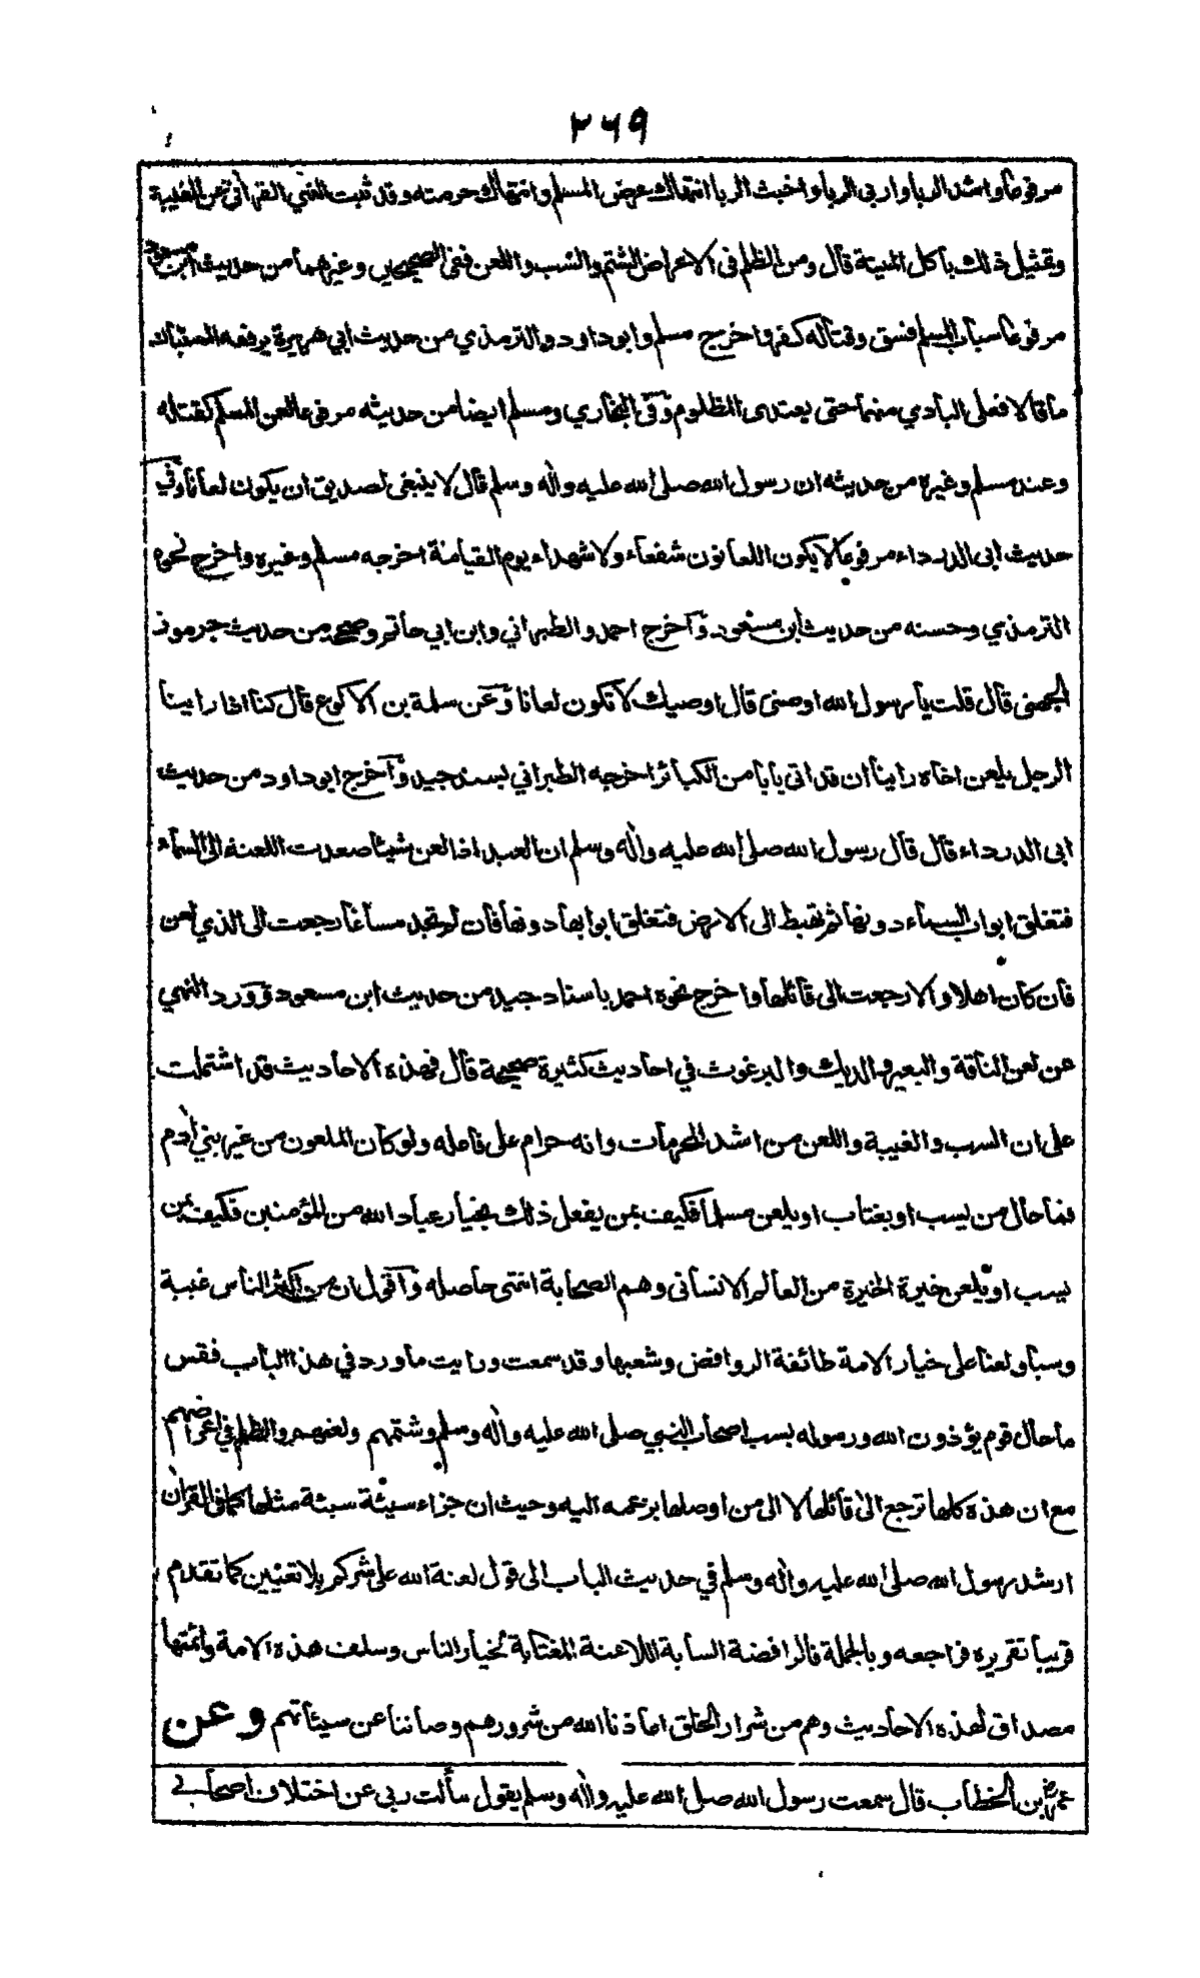 ٢٦٩
مرفوعا واشد الربا واربى الربا واخبث الربا انتهاك عرض المسلم وانتهاك حرمته وقد ثبت النهي القرآني عن الغيبة
وتمثيل ذلك بأكل الميتة قال ومن الظلم فى الاعراض الشتم والسب واللعن ففى الصحيحين وغيرهما من حديث ابن مسعود
مرفوعا سباب المسلم فسق وقتاله كفر واخرج مسلم وابو داود والترمذي من حديث ابي هريرة يرفعه المستبان
ما قالا فعلى البادي منهما حتى يعتدى المظلوم وفى البخاري ومسلم ايضا من حديثه مرفوعا لعن المسلم كقتاله
وعند مسلم وغيره من حديثه ان رسول الله صلى الله عليه واله وسلم قال لا ينبغى لصديق ان يكون لعانا وفي
حديث ابى الدرداء مرفوعا لا يكون اللعانون شفعاء ولا شهداء يوم القيامة اخرجه مسلم وغيره واخرج نحوه
الترمذي وحسنه من حديث ابن مسعود وآخرج احمد والطبراني وابن ابي حاتم وصححه من حديث جرموز
الجهنى قال قلت يا رسول الله اوصنى قال اوصيك لا تكون لعانا وعن سلمة بن الاكوع قال كنا اذا راينا
الرجل يلعن اخاه راينا ان قد اتى بابا من الكبائر اخرجه الطبراني بسند جيد وآخرج ابو داود من حديث
ابى الدرداء قال قال رسول الله صلى الله عليه واله وسلم ان العبد اذا لعن شيئا صعدت اللعنة الى السماء
فتغلق ابواب السماء دونها ثم تهبط الى الارض فتغلق ابوابها دونها فان لم تجد مساغا رجعت الى الذي لعن
فان كان اهلا والا رجعت الى قائلها واخرج نحوه احمد باسناد جيد من حديث ابن مسعود وورد النهي
عن لعن الناقة والبعير والديك والبرغوث في احاديث كثيرة صحيحة قال فهذه الاحاديث قد اشتملت
على ان السب والغيبة واللعن من اشد المحرمات وانه حرام على فاعله ولو كان الملعون من غير بني آدم
فما حال من يسب او يغتاب او يلعن مسلما فكيف بمن يفعل ذلك بخيار عباد الله من المؤمنين فكيف بمن
يسب او يلعن خيرة الخيرة من العالم الانسانى وهم الصحابة انتهى حاصله وآقول ان من اكثر الناس غيبة
وسبا ولعنا على خيار الامة طائفة الروافض وشعبها وقد سمعت ورايت ما ورد في هذا الباب فقس
ما حال قوم يؤذون الله ورسوله بسب اصحاب النبي صلى الله عليه واله وسلم وشتمهم ولعنهم والظلم في اعراضهم
مع ان هذه كلها ترجع الى قائلها لا الى من اوصلها بزعمه اليه وحيث ان جزاء سيئة سيئة مثلها كما فى القرآن
ارشد رسول الله صلى الله عليه واله وسلم في حديث الباب الى قول لعنة الله على شركم بلا تعيين كما تقدم
قريبا تقريره فراجعه وبالجملة فالرافضة السابة اللاعنة المغتابة لخيار الناس وسلف هذه الامة وائمتها
مصداق لهذه الاحاديث وهم من شرار الخلق اعاذنا الله من شرورهم وصاننا عن سيئاتهم وعن
عمر بن الخطاب قال سمعت رسول الله صلى الله عليه واله وسلم يقول سألت ربى عن اختلاف اصحابي